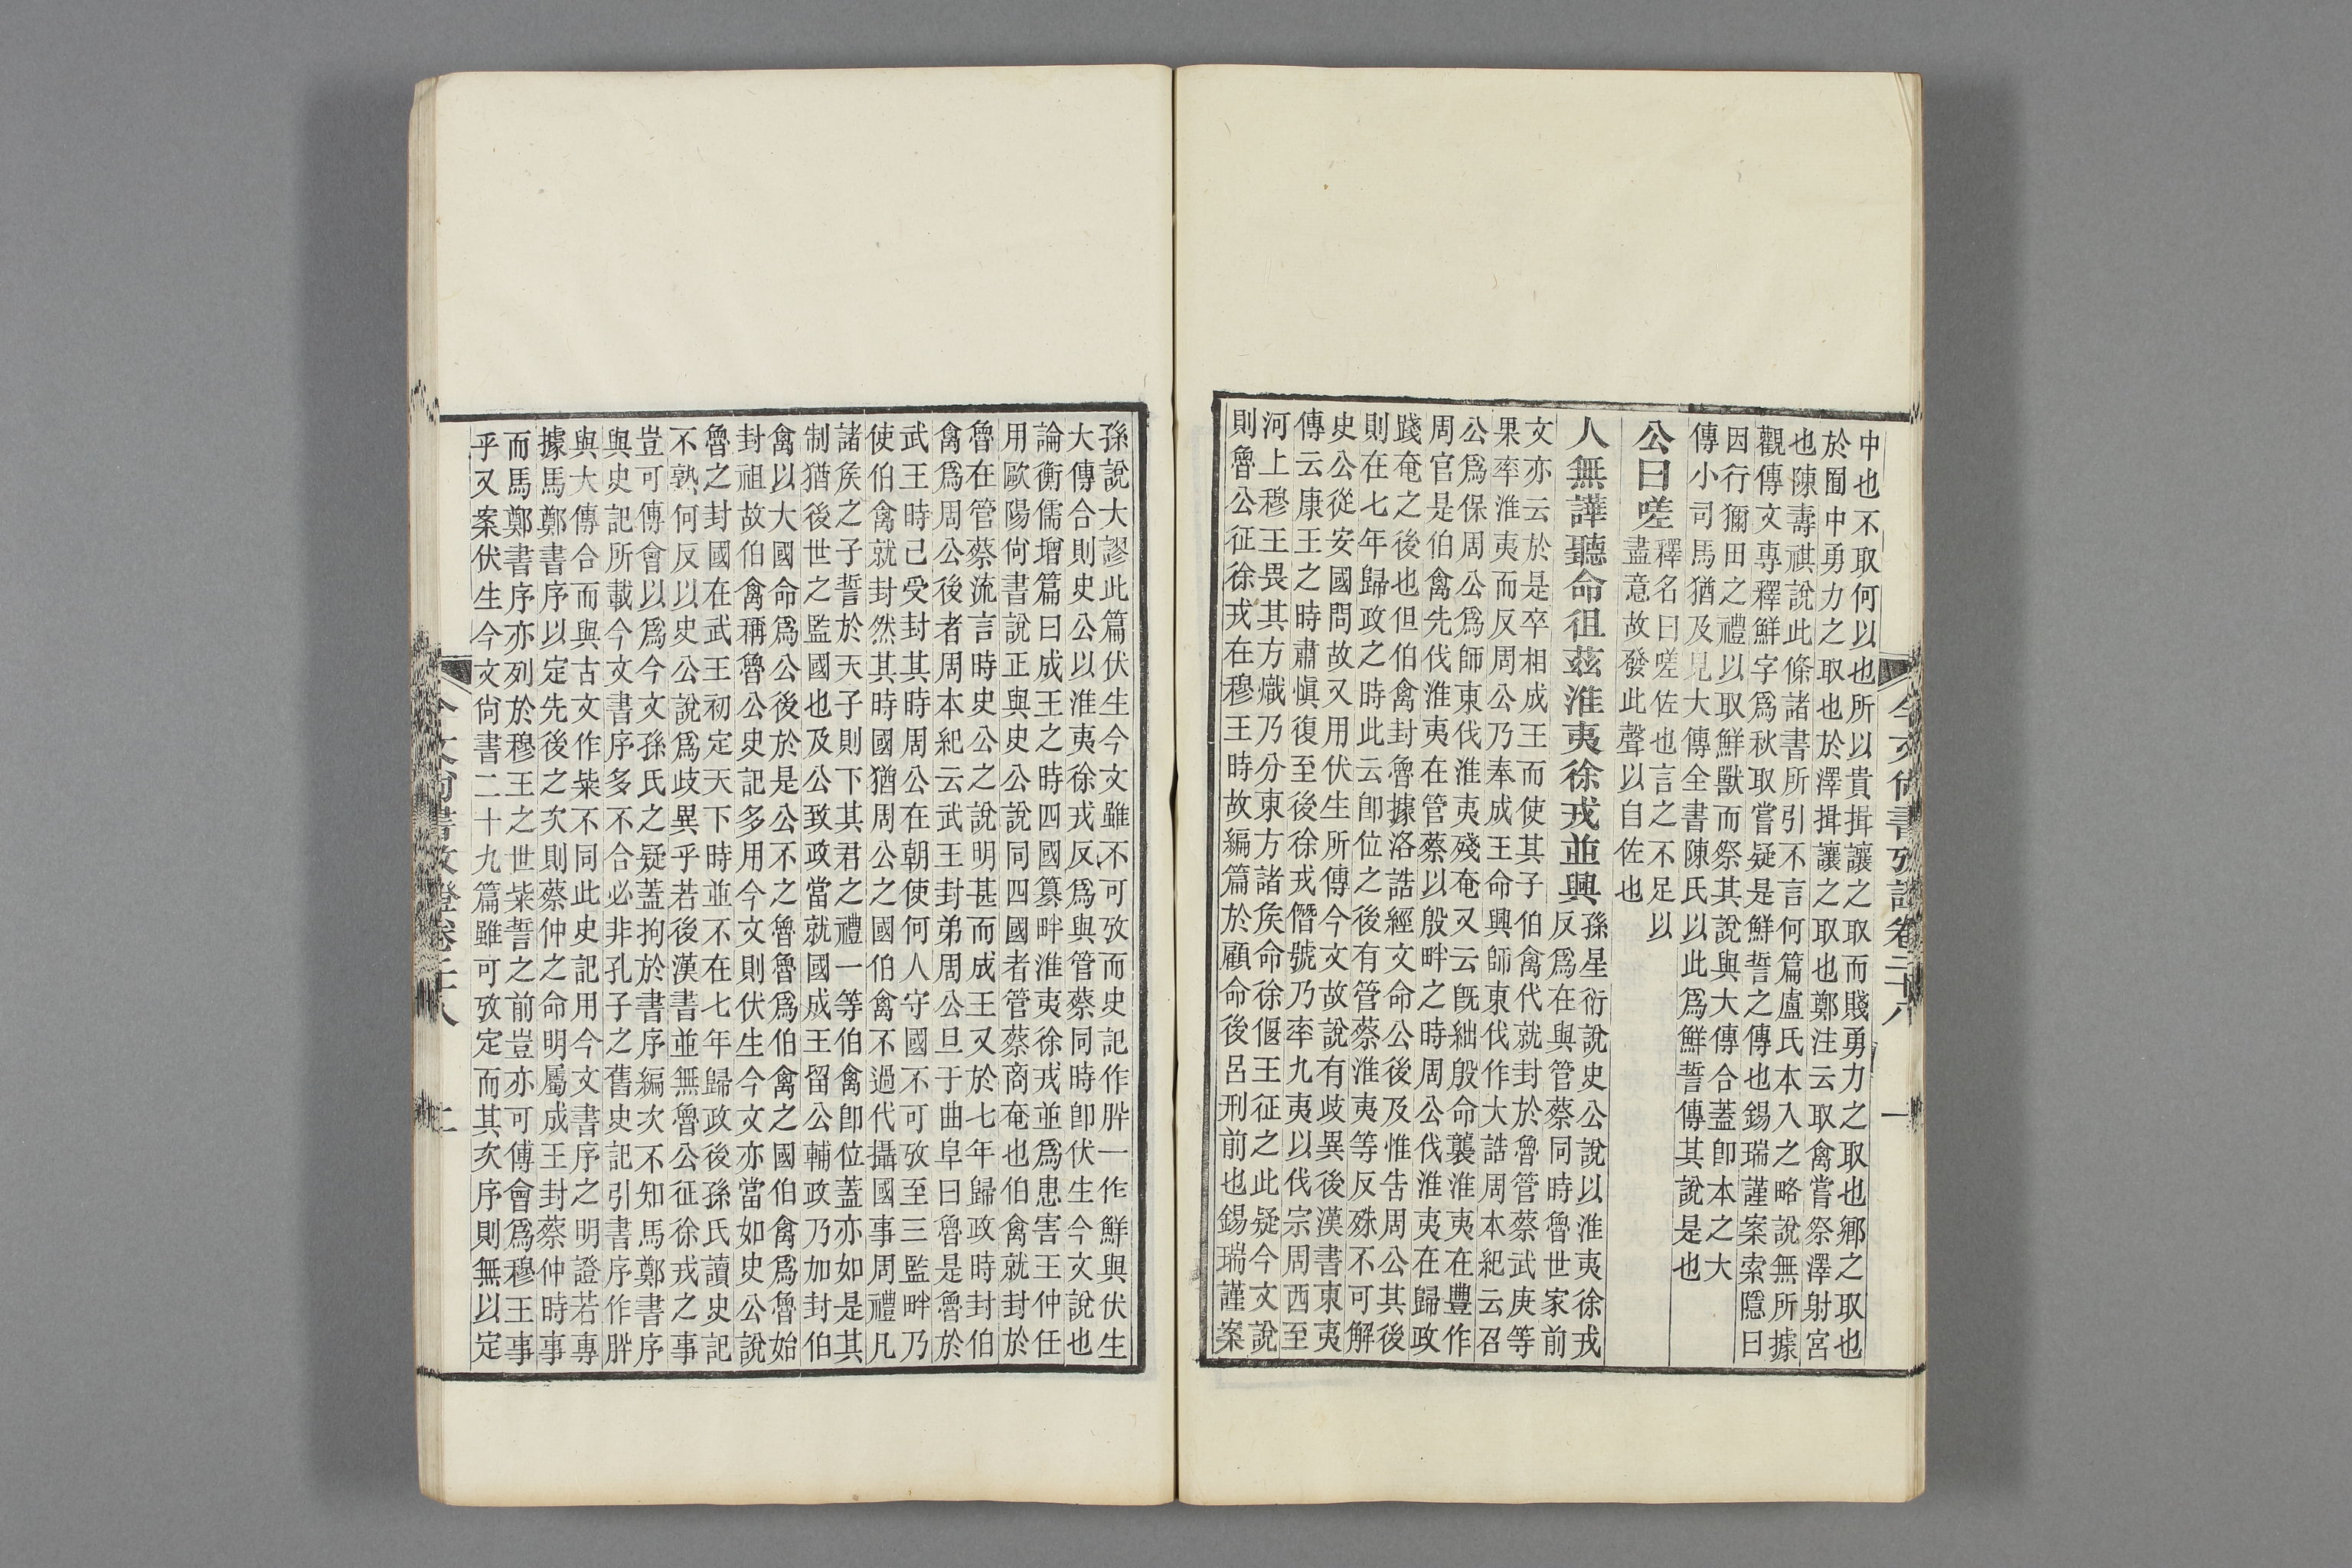 今文尙書攷證卷二十八
中也不取何以也所以貴揖讓之取而賤勇力之取也鄉之取也
於囿中勇力之取也於澤揖讓之取也鄭注云取禽嘗祭澤射宮
也陳壽祺說此條諸書所引不言何篇盧氏本入之略說無所據
觀傳文專釋鮮字爲秋取嘗疑是鮮誓之傳也錫瑞謹案索隱曰
因行獮田之禮以取鮮獸而祭其說與大傳合蓋卽本之大
傳小司馬猶及見大傳全書陳氏以此爲鮮誓傳其說是也
公曰嗟
釋名曰嗟佐也言之不足以
盡意故發此聲以自佐也
人無譁聽命徂茲淮夷徐戎並興
孫星衍說史公說以淮夷徐戎
反爲在與管蔡同時魯世家前
文亦云於是卒相成王而使其子伯禽代就封於魯管蔡武庚等
果率淮夷而反周公乃奉成王命興師東伐作大誥周本紀云召
公爲保周公爲師東伐淮夷殘奄又云旣絀殷命襲淮夷在豐作
周官是伯禽先伐淮夷在管蔡以殷畔之時周公伐淮夷在歸政
踐奄之後也但伯禽封魯據洛誥經文命公後及惟告周公其後
則在七年歸政之時此云卽位之後有管蔡淮夷等反殊不可解
史公從安國問故又用伏生所傳今文故說有歧異後漢書東夷
傳云康王之時肅愼復至後徐戎僭號乃率九夷以伐宗周西至
河上穆王畏其方熾乃分東方諸侯命徐偃王征之此疑今文說
則魯公征徐戎在穆王時故編篇於顧命後呂刑前也錫瑞謹案
孫說大謬此篇伏生今文雖不可攷而史記作肸一作鮮與伏生
大傳合則史公以淮夷徐戎反爲與管蔡同時卽伏生今文說也
論衡儒增篇曰成王之時四國篡畔淮夷徐戎並爲患害王仲任
用歐陽尙書說正與史公說同四國者管蔡商奄也伯禽就封於
魯在管蔡流言時史公之說明甚而成王又於七年歸政時封伯
禽爲周公後者周本紀云武王封弟周公旦于曲阜曰魯是魯於
武王時已受封其時周公在朝使何人守國不可攷至三監畔乃
使伯禽就封然其時國猶周公之國伯禽不過代攝國事周禮凡
諸侯之子誓於天子則下其君之禮一等伯禽卽位蓋亦如是其
制猶後世之監國也及公致政當就國成王留公輔政乃加封伯
禽以大國命爲公後於是公不之魯魯爲伯禽之國伯禽爲魯始
封祖故伯禽稱魯公史記多用今文則伏生今文亦當如史公說
魯之封國在武王初定天下時並不在七年歸政後孫氏讀史記
不熟何反以史公說爲歧異乎若後漢書並無魯公征徐戎之事
豈可傳會以爲今文孫氏之疑蓋拘於書序編次不知馬鄭書序
與史記所載今文書序多不合必非孔子之舊史記引書序作肸
與大傳合而與古文作粊不同此史記用今文書序之明證若專
據馬鄭書序以定先後之次則蔡仲之命明屬成王封蔡仲時事
而馬鄭書序亦列於穆王之世粊誓之前豈亦可傅會爲穆王事
乎又案伏生今文尙書二十九篇雖可攷定而其次序則無以定